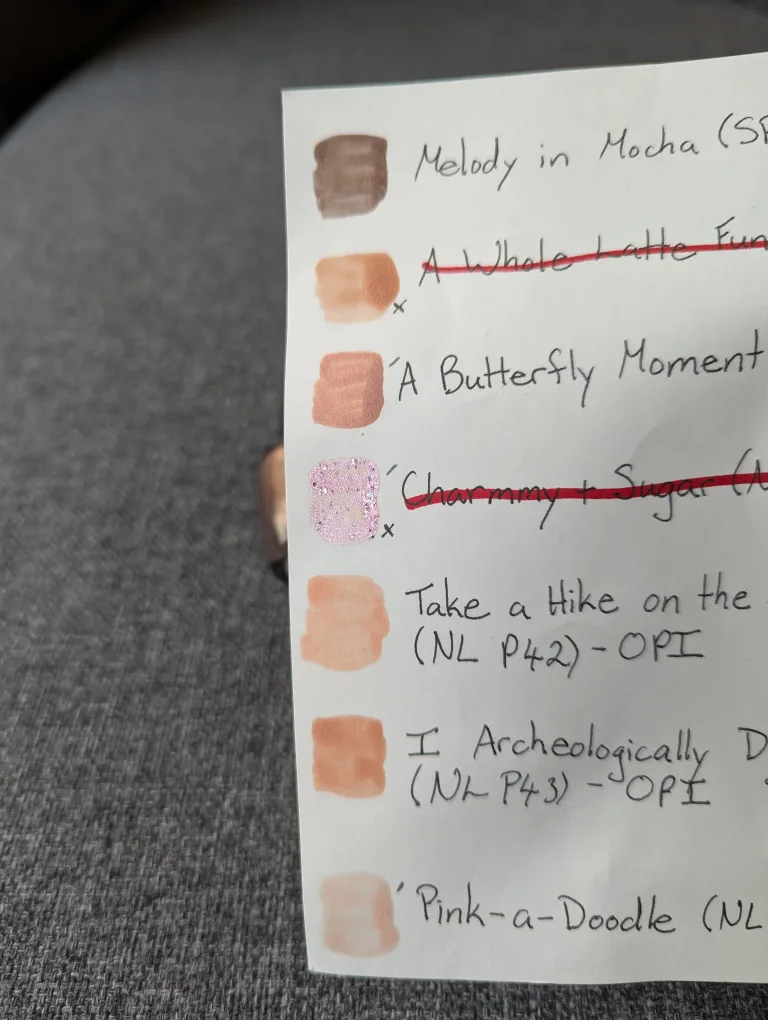 Melody in Mocha (SP
A Whole Latte Fun
x
'A Butterfly Moment
'Charmmy + Sugar (N
x
Take a Hike on the
(NL P42) - OPI
I Archeologically D
(NL P43) - OPI
'Pink-a-Doodle (NL